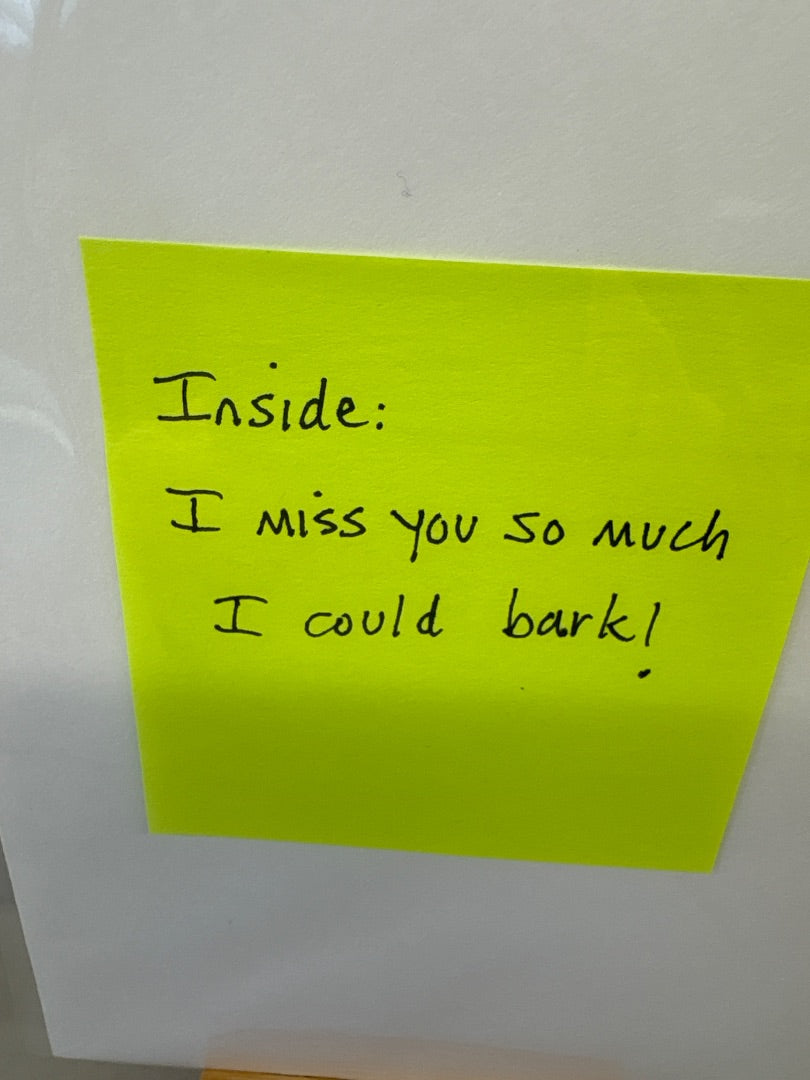 Inside:
I miss you so much
I could bark!